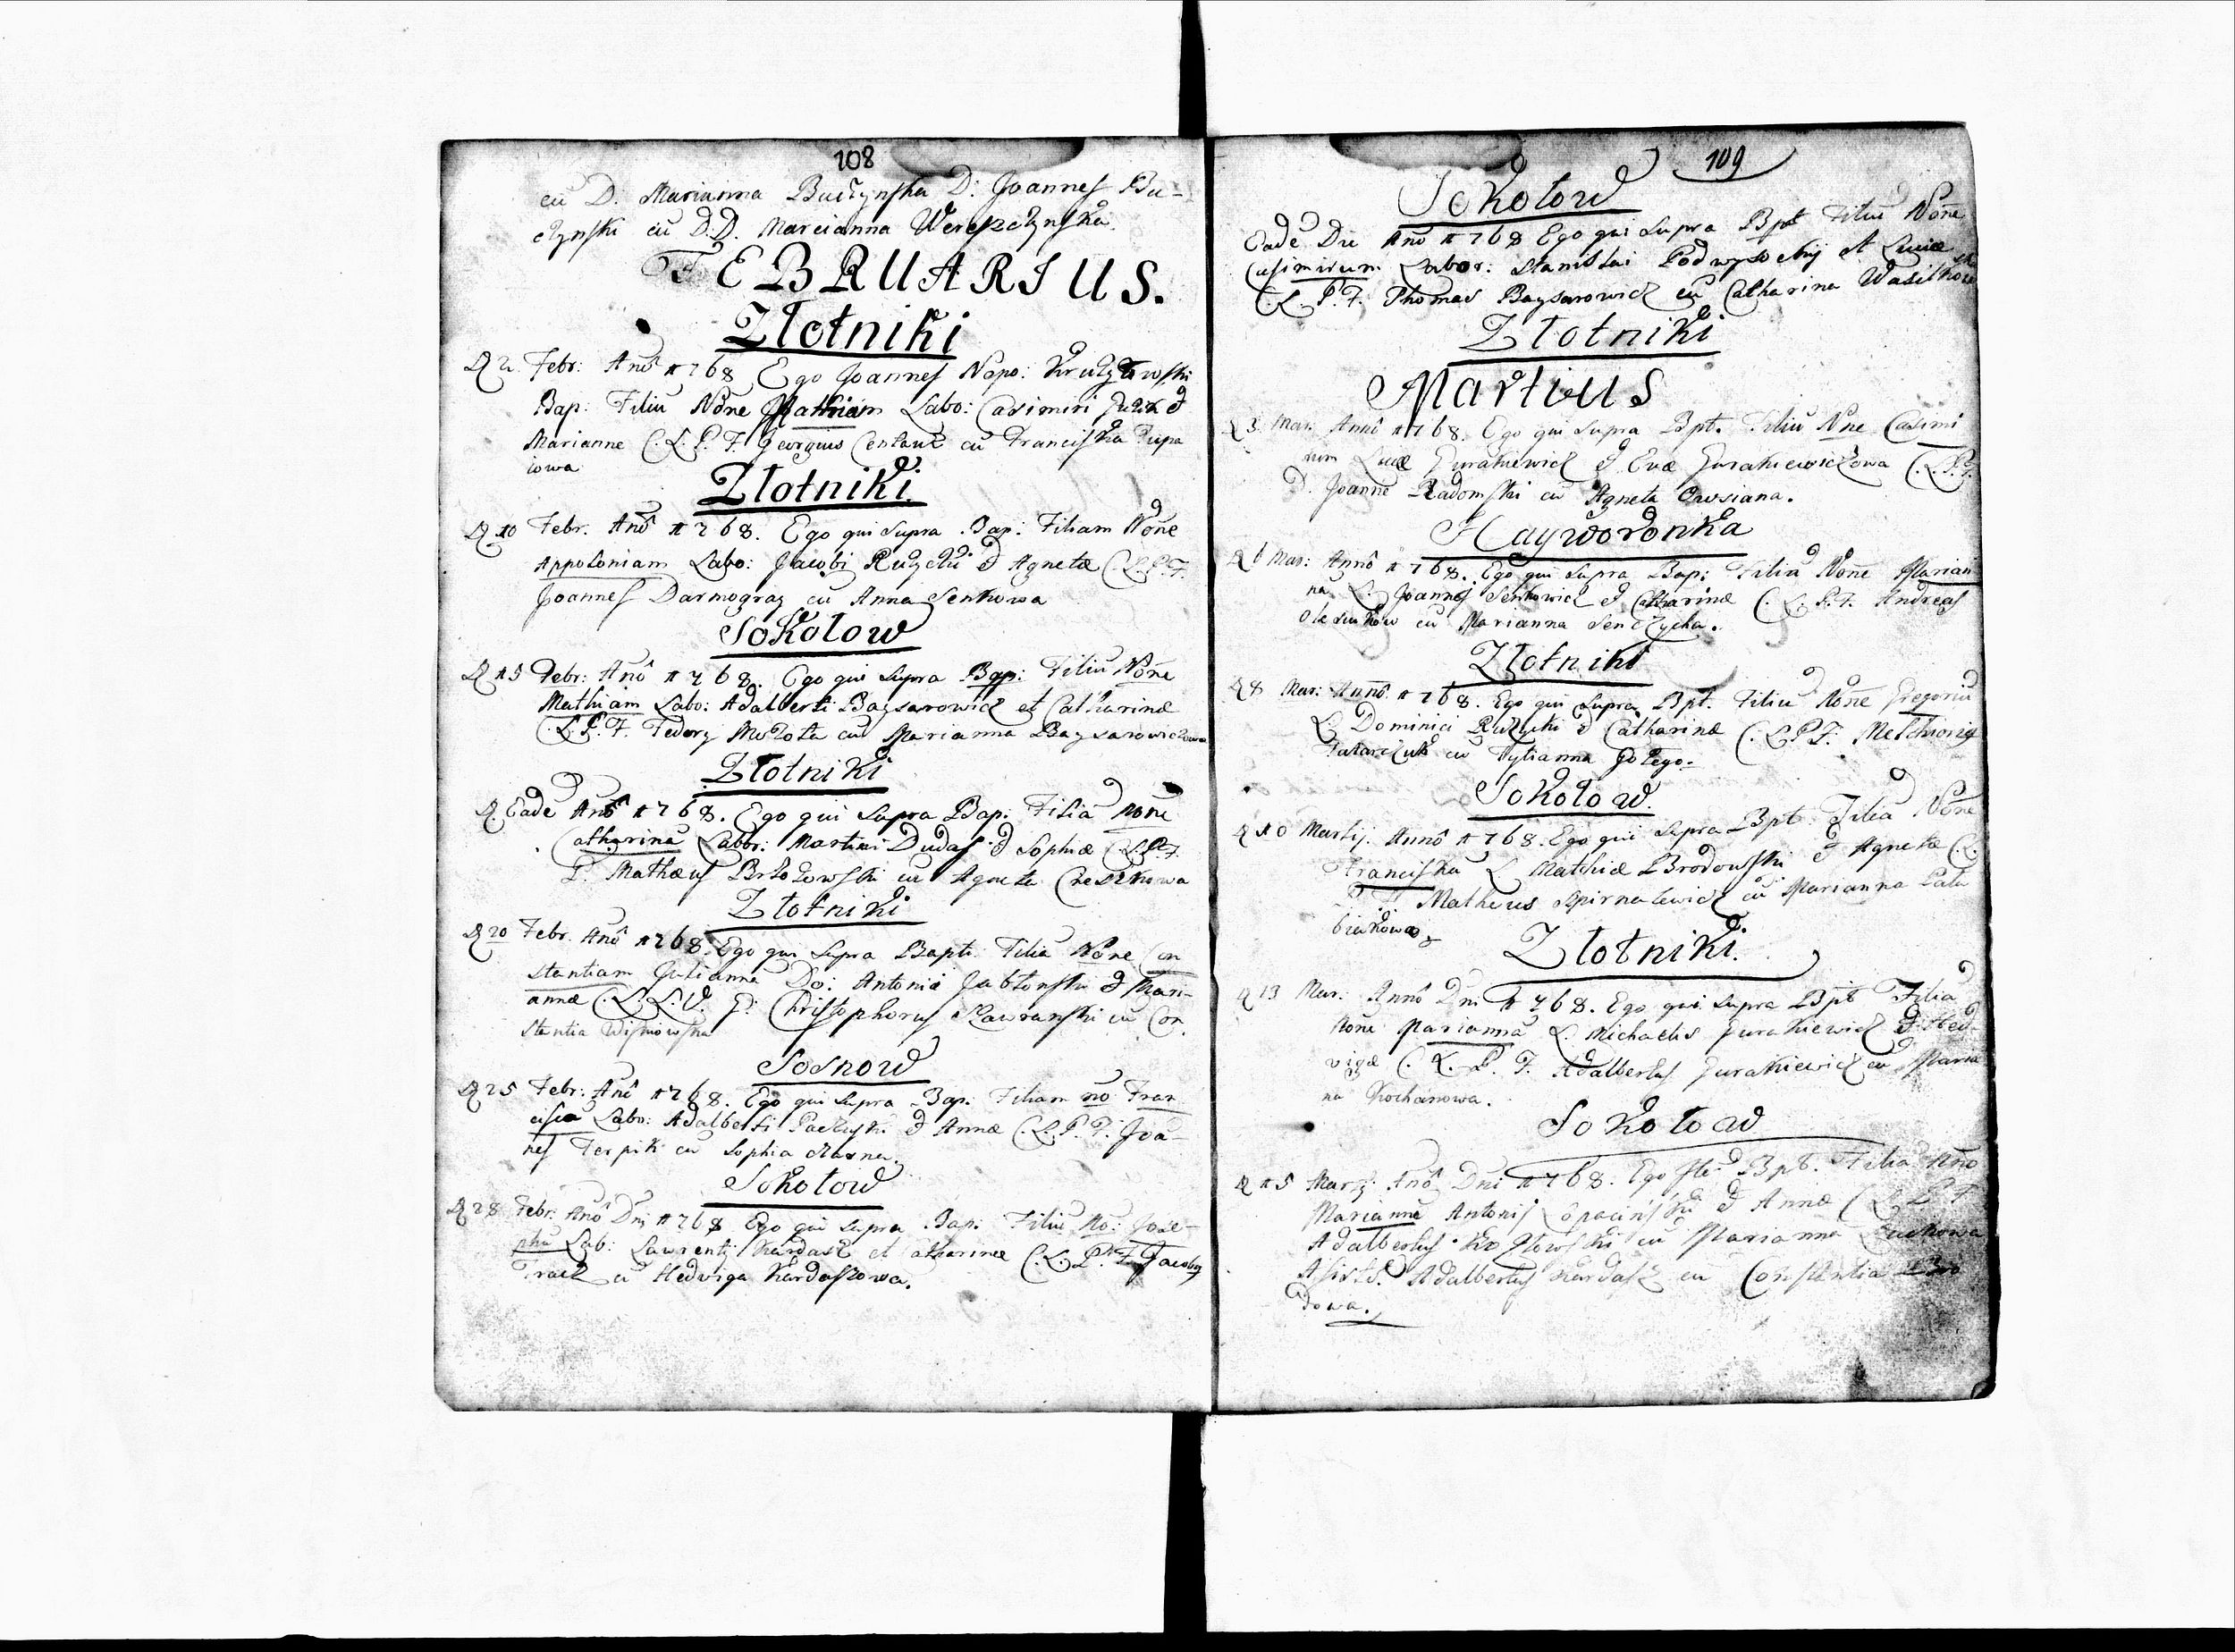 108
cu D. Marianna Buczynska D: Joannes Bu-
czynski cu D.D. Marcianna Wereszczynska.
FEBRUARIUS.
Złotniki
D 2 Febr: Anō 1768 Ego Joannes Nepo:
Bap: Filiū Nōne Mathiam Labo: Casimiri et
Marianne C. L. P. F. Georgius cū Franciszka Pupa
iowa
Złotniki.
D 10 Febr. Anō 1768. Ego qui supra Bap: Filiam Nōne
Appoloniam Labo: Jacobi et Agnetæ C. L. P. F.
Joannes Darmogray cū Anna Senkowa
Sokołow
D 15 Febr: Anō 1768. Ego qui supra Bap: Filiū Nōne
Mathiam Labo: Adalberti Baysarowicz et Catharinæ
C. L. P. F. Fedory Mozota cū Marianna Baysarowiczowa
Złotniki
D. Eadē Anō 1768. Ego qui supra Bap. Filiā none
Catharinā Labor: Martini Dudas et Sophiæ C. L. P. F.
P. Mathæus Brzozowski cū Agneta
Złotniki
D 20 Febr. Anō 1768. Ego qui supra Bapti. Filiā Nōne Con
stantiam Julianna Do: Antonii Jabłonski et Mari-
annæ C. L. L. V. G: Christophorus Kawranski cū Con
stantia Wisniowska
Sosnow
D 25 Febr: Anō 1768. Ego qui supra Bap: Filiam no Fran
cisca Labo: Adalberti et Annæ C. L. P. F. Joa-
nes Terpik cū Sophia
Sokołow
D 28 Febr: Anō Dni 1768 Ego qui supra Bap: Filiū No: Jose-
phū Lab: Laurentij Kardasz et Catharinæ C. L. P. F. Jacoby
Tracz cū Hedviga Kardaszowa.
109
Sokołow
Eadē Die Anō 1768 Ego qui supra Bpt Filiū Nōne
Casimirum Labor: Stanislai Podwysockij et Luciæ
C. L. P. F. Thomas Baysarowicz cū Catharina Wasilkow
Złotniki
Martius
D 3 Mar. Annō 1768. Ego qui supra Bpt. Filiū Nne Casimi
rum Lucæ Jurakiewicz et Evæ Jurakiewiczowa C. L. P. F.
D. Joanne Radomski cū Agneta Owsiana.
Hayworonka
D 6 Mar: Annō 1768. Ego qui supra Bap: Filiā Nōne Marian
na L. Joannes Senkowicz et Catharinæ C. L. P. F. Andreas
cū Marianna Senczycha.
Złotniki
D 8 Mar: Annō 1768. Ego qui supra Bpt. Filiū Nōne Gregoriū
L. Dominici Ruzycki et Catharinæ C. L. P. F. Melchiorig
Tatarczuk cū Tytianna
Sokołow.
D 10 Martij. Annō 1768. Ego qui supra Bpt. Filiā Nōne
Franciszkā L Mathiæ Brodowski et Agnetæ C. L.
P. F. Matheus cū Marianna Pału
biakowa
Złotniki.
D 13 Mar: Annō Dni 1768. Ego qui supra Bpt Filiā
None Marianna L. Michaelis Jurakiewicz et Hed
vigæ C. L. P. F. Adalbertus Jurakiewicz cū Maria
na Kochanowa.
Sokołow
D 15 Marz. Anō Dni 1768. Ego Bpt. Filiā
Marianne Antonij Łopacinski et Annæ C L P F
Adalbertus Kozłowski cū Marianna
Asists. Adalbertus Kardasz cū Constantia
dowa.